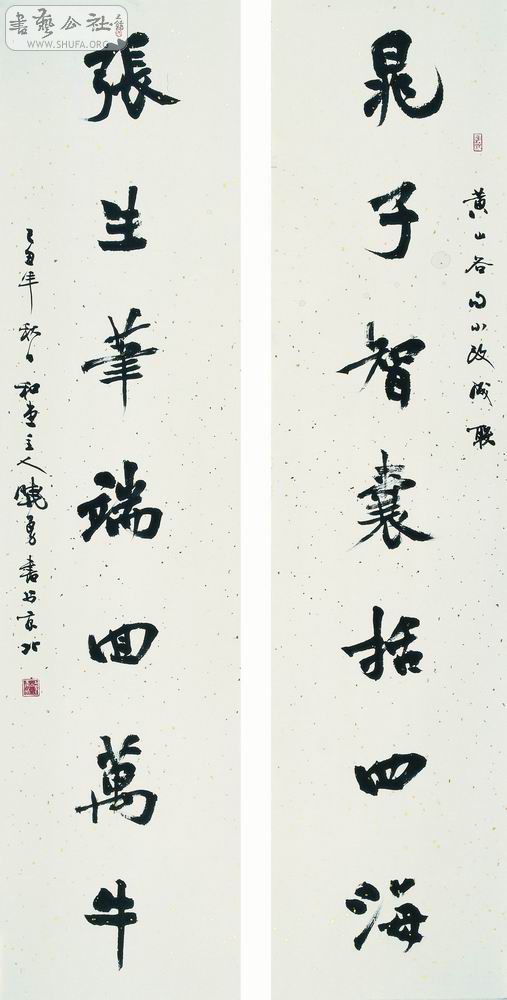 書藝公社
WWW.SHUFA.ORG
黄山谷句小改成联
晁子智囊括四海
張生筆端回萬牛
乙酉年秋日和主人曉勇書於京北